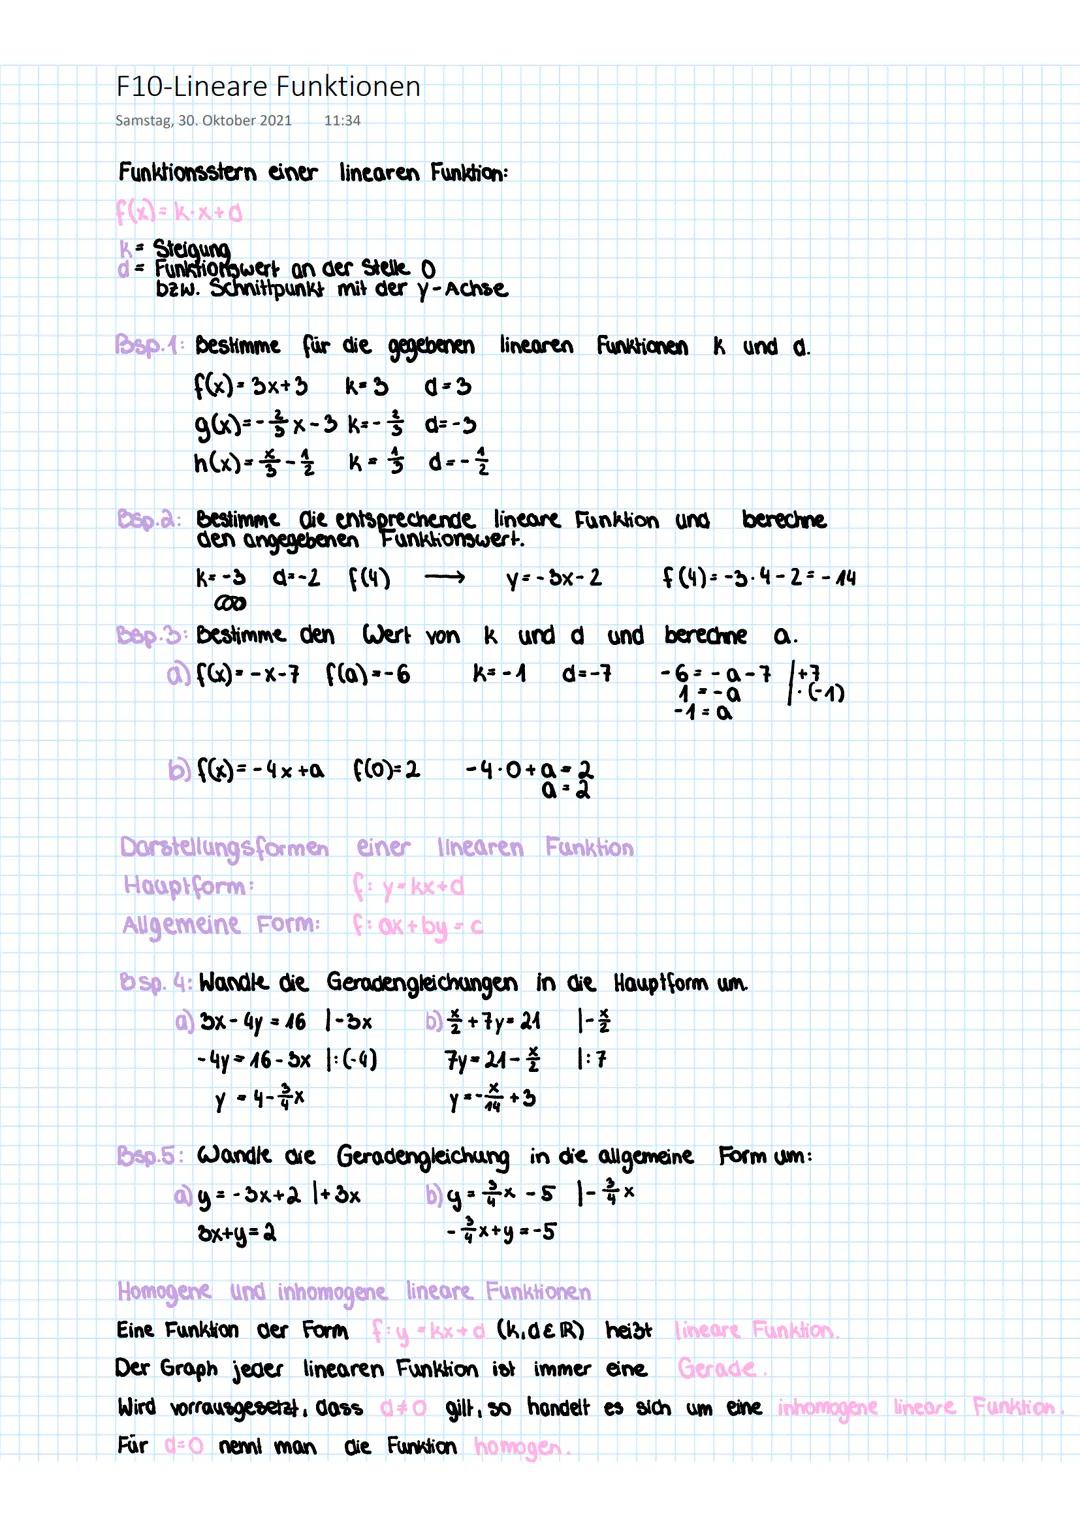 F10-Lineare Funktionen
Samstag, 30. Oktober 2021 11:34
Funktionsstern einer linearen Funktion:
f(x)= k·x+d
k= Steigung
d= Funktionswert an der Stelle 0
bzw. Schnittpunkt mit der y-Achse
Bsp.1: Bestimme für die gegebenen linearen Funktionen k und d.
f(x)= 3x+3 k=3 d=3
g(x)=-2/3 x-3 k=-2/3 d=-3
h(x)= x/3 - 1/2 k= 1/3 d=-1/2
Bsp.2: Bestimme die entsprechende lineare Funktion und berechne
den angegebenen Funktionswert.
k=-3 d=-2 f(4) → y=-3x-2 f(4)=-3·4-2=-14
Bsp.3: Bestimme den Wert von k und d und berechne a.
a) f(x)= -x-7 f(a)=-6 k=-1 d=-7 -6= -a-7 |+7
1 = -a |·(-1)
-1 = a
b) f(x)= -4x+a f(0)=2 -4·0+a=2
a=2
Darstellungsformen einer linearen Funktion
Hauptform: f: y=kx+d
Allgemeine Form: f: ax+by=c
Bsp. 4: Wandle die Geradengleichungen in die Hauptform um.
a) 3x-4y=16 |-3x b) x/2 +7y=21 |-x/2
-4y=16-3x |:(-4) 7y=21-x/2 |:7
y = 4-3/4x y=-x/14 +3
Bsp.5: Wandle die Geradengleichung in die allgemeine Form um:
a) y=-3x+2 |+3x b) y= 3/4x -5 |-3/4x
3x+y=2 -3/4x+y=-5
Homogene und inhomogene lineare Funktionen
Eine Funktion der Form f: y=kx+d (k,d∈ℝ) heißt lineare Funktion.
Der Graph jeder linearen Funktion ist immer eine Gerade.
Wird vorrausgesetzt, dass d≠0 gilt, so handelt es sich um eine inhomogene lineare Funktion.
Für d=0 nennt man die Funktion homogen.